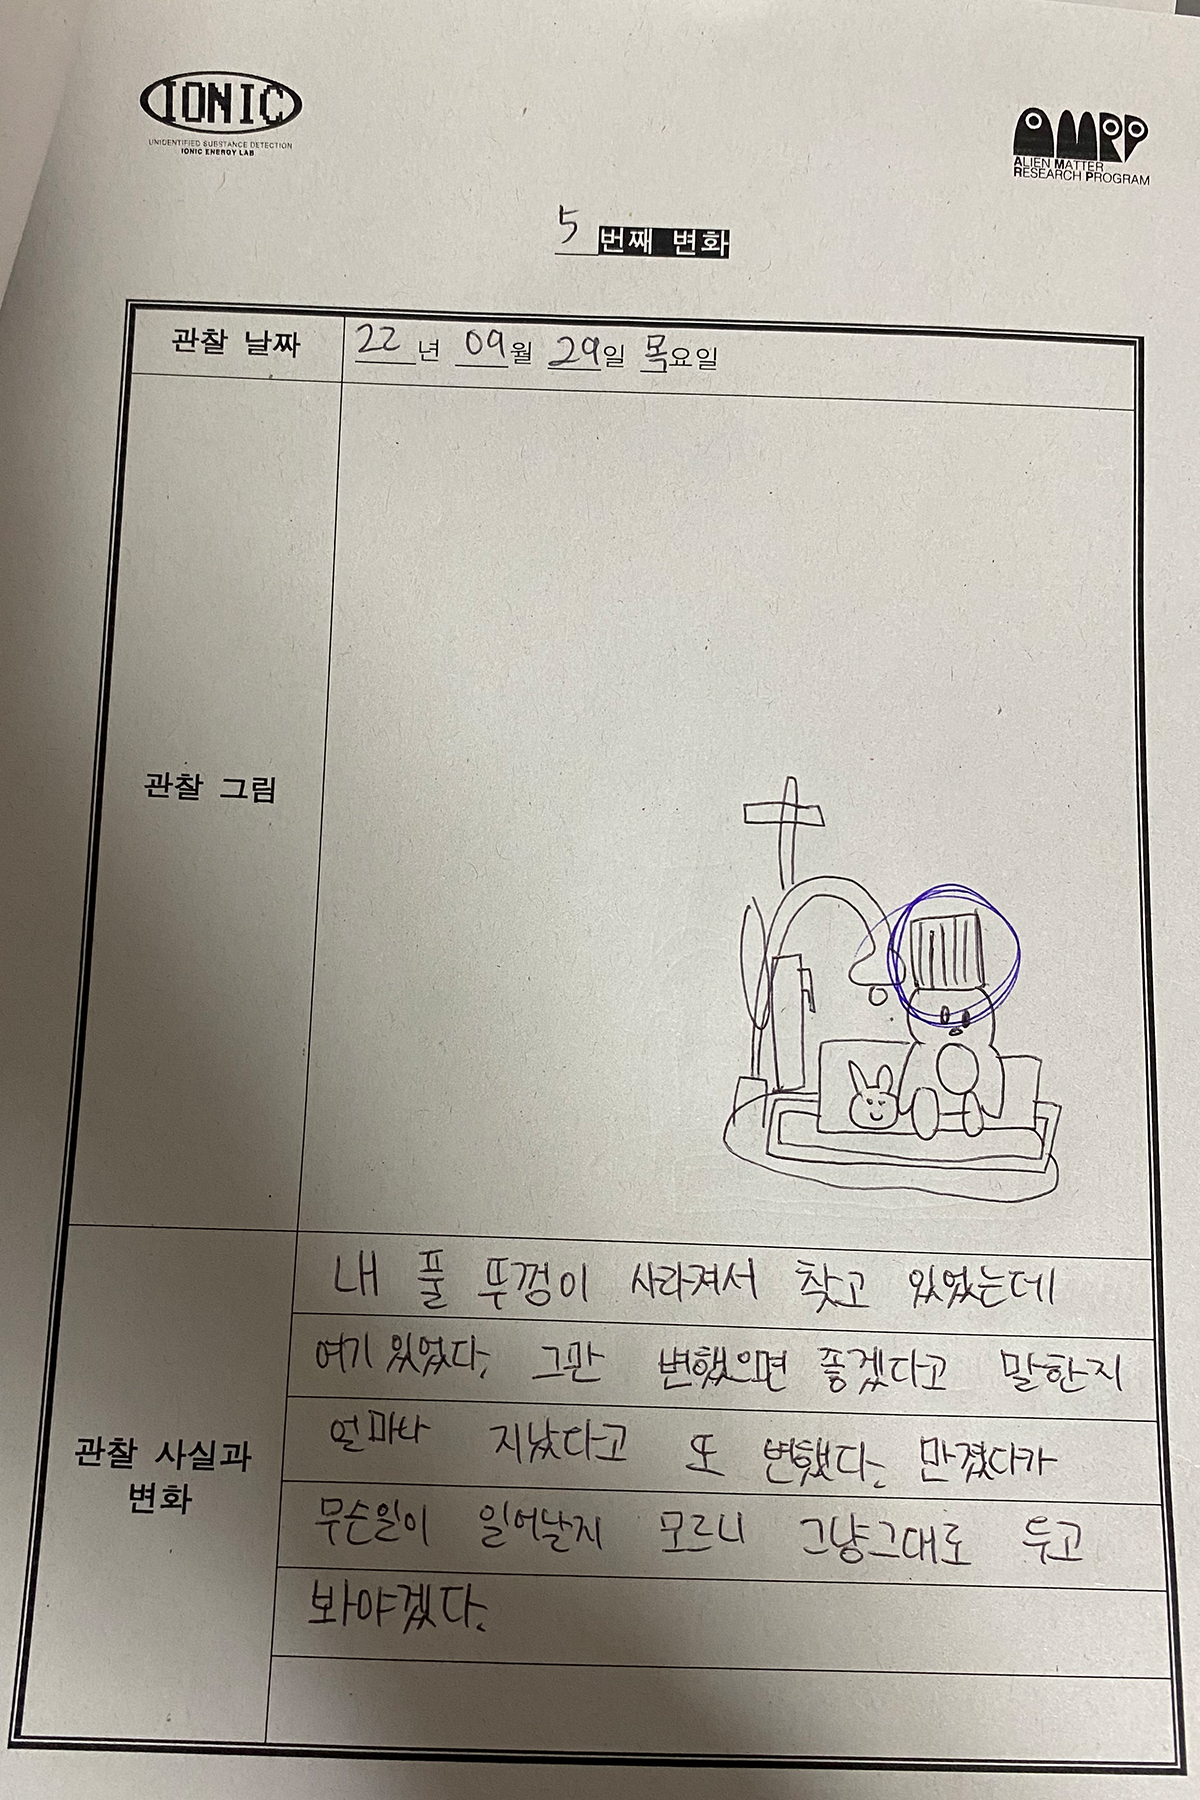 IONIC
UNIDENTIFIED SUBSTANCE DETECTION
IONIC ENERGY LAB
AMRP
ALIEN MATTER
RESEARCH PROGRAM
5 번째 변화
관찰 날짜
22 년 09월 29일 목요일
관찰 그림
관찰 사실과
변화
내 풀 뚜껑이 사라져서 찾고 있었는데
여기 있었다. 그만 변했으면 좋겠다고 말한지
얼마나 지났다고 또 변했다. 만졌다가
무슨일이 일어날지 모르니 그냥그대로 두고
봐야겠다.